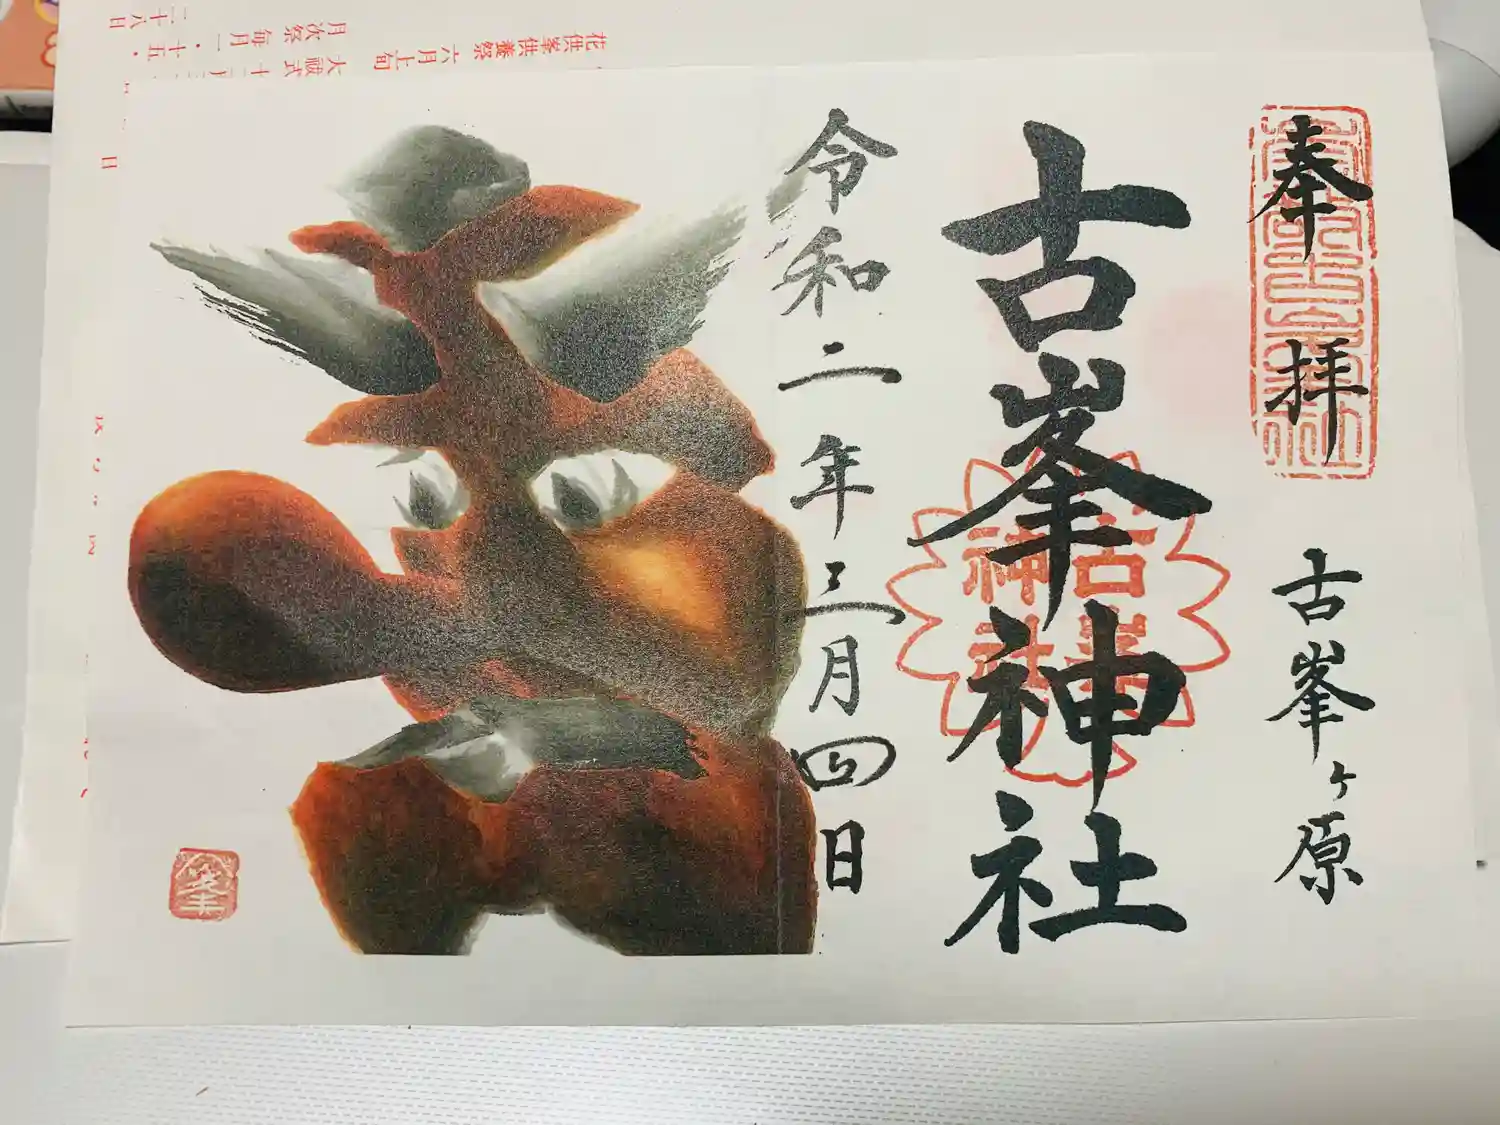 奉拝
古峯ヶ原
古峯神社
古峯神社
令和二年三月四日
峯
花供峯供養祭 六月上旬
大祓式 十二月
月次祭 毎月一・十五・
二十八日
日